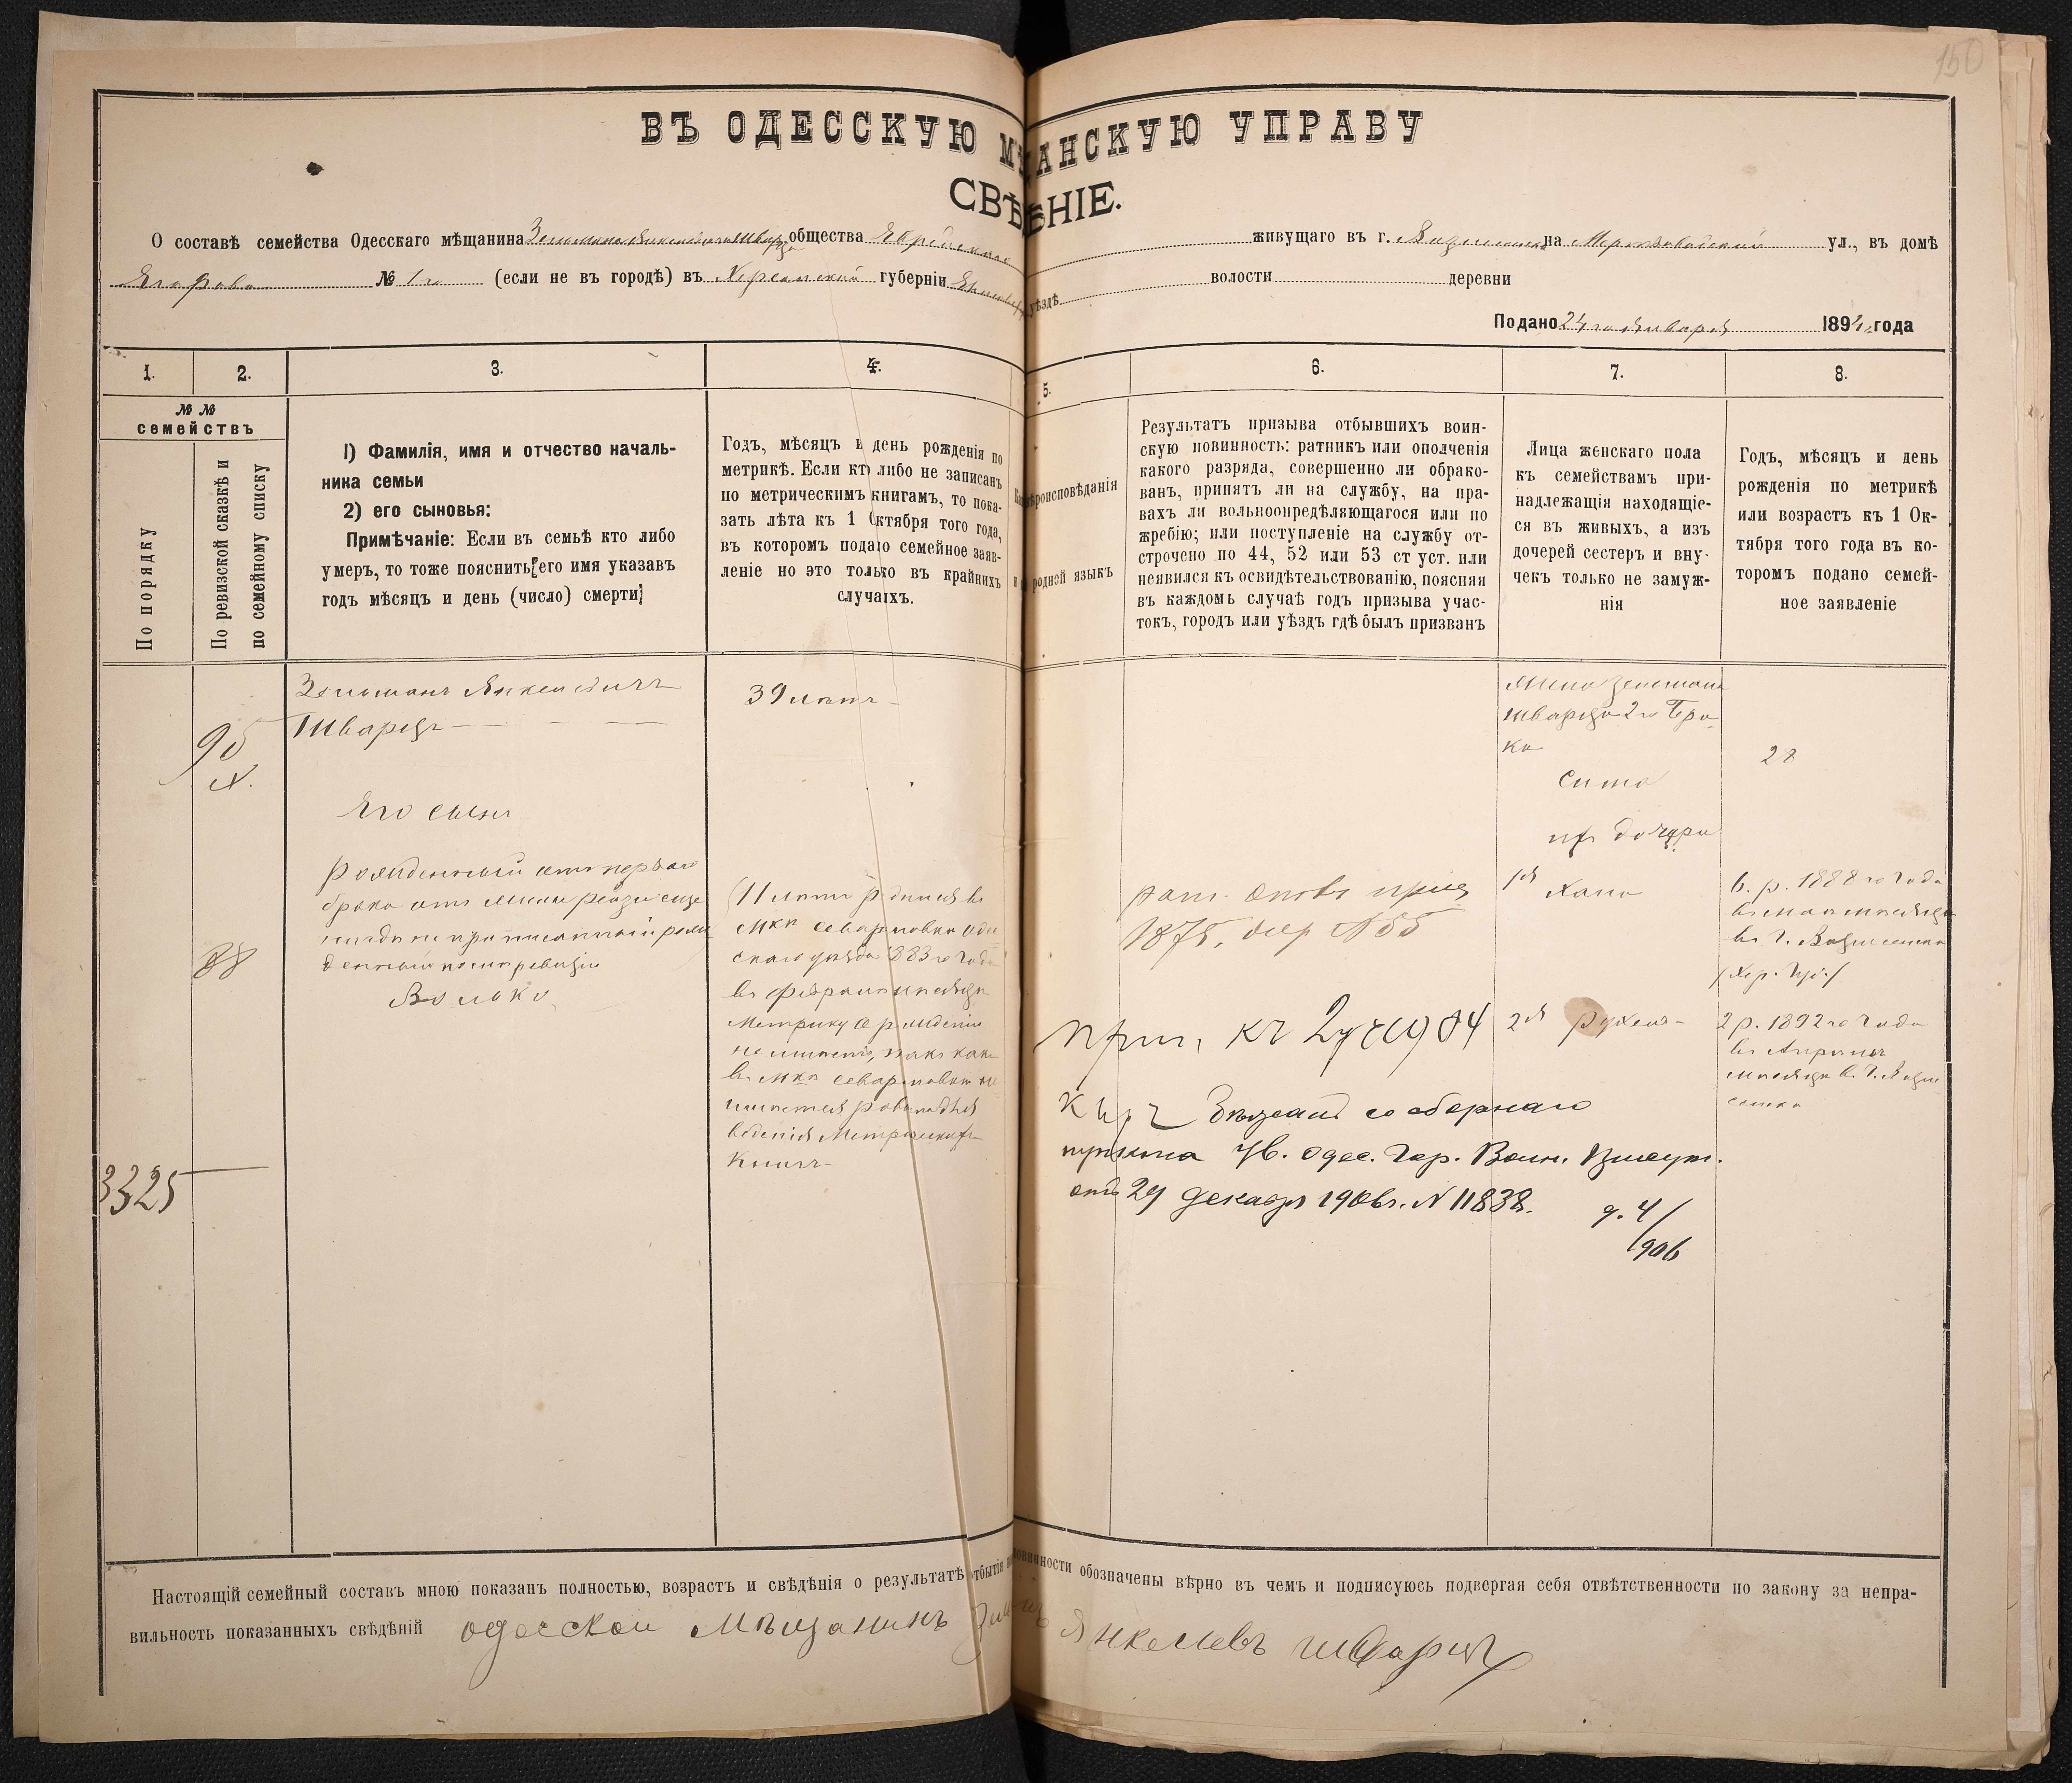 150
ВЪ ОДЕССКУЮ МѢ АНСКУЮ УПРАВУ
СВѢ ЕНІЕ.
О составѣ семейства Одесскаго мѣщанина Зельмана Янкелевича Шварца общества Еврейскаго живущаго въ г. Вознесенскѣ на ул., въ домѣ
Егорова № 1го (если не въ городѣ) въ Херсонской губерніи уѣздѣ волости деревни
Подано 24 го Января 189 года
1. 2. 3. 4. 5. 6. 7. 8.
№ №
семействъ
По порядку
По ревизской сказкѣ и
по семейному списку
1) Фамилія, имя и отчество началь-
ника семьи
2) его сыновья:
Примѣчаніе: Если въ семьѣ кто либо
умеръ, то тоже пояснить его имя указавъ
годъ мѣсяцъ и день (число) смерти
Годъ, мѣсяцъ и день рожденія по
метрикѣ. Если кто либо не записанъ
по метрическимъ книгамъ, то пока-
зать лѣта къ 1 Октября того года,
въ которомъ подано семейное заяв-
леніе но это только въ крайнихъ
случаяхъ.
вѣроисповѣданія
и родной языкъ
Результатъ призыва отбывшихъ воин-
скую повинность: ратникъ или ополченія
какого разряда, совершенно ли обрако-
ванъ, принятъ ли на службу, на пра-
вахъ ли вольноопредѣляющагося или по
жребію; или поступленіе на службу от-
строчено по 44, 52 или 53 ст уст. или
неявился къ освидѣтельствованію, поясняя
въ каждомь случаѣ годъ призыва учас-
токъ, городъ или уѣздъ гдѣ былъ призванъ
Лица женскаго пола
къ семействамъ при-
надлежащія находящіе-
ся въ живыхъ, а изъ
дочерей сестеръ и вну-
чекъ только не замуж-
нія
Годъ, мѣсяцъ и день
рожденія по метрикѣ
или возрастъ къ 1 Ок-
тября того года въ ко-
торомъ подано семей-
ное заявленіе
Зельманъ Янкелевичъ
Шварцъ
95
39 лѣтъ
Жена Зельмана
Шварца 2го Бра-
ка
Сима
28
Его сынъ
ихъ дочери
рожденный отъ перваго
брака отъ жены Рейзи еще
нигдѣ не приписанный рож
денный послѣ ревизіи
Волько
88
11 лѣтъ родился въ
Мкѣ Севериновкѣ Оде
скаго уѣзда 1883 го года
въ Февралѣ мѣсяцѣ
Метрику о рожденіи
не имѣетъ, такъ какъ
въ Мкѣ Севериновкѣ не
имѣется раввина для
веденія Метрическихъ
Книгъ
1875, № 55
1я Хана
в. р. 1888 го года
въ маѣ мѣсяцѣ
въ г. Вознесенскѣ
/Хер. Губ./
прип. къ 2 уч 1904
2я Рухля
2 р. 1892 го года
въ Апрѣлѣ
мѣсяцѣ въ г. Возне
сенскѣ
со сборнаго
пункта Ув. Одес. Гор. Воин. Присут.
отъ 29 декабря 1906 г. N 11838.
д. 4/906
3325
Настоящій семейный составъ мною показанъ полностью, возрастъ и свѣдѣнія о результатѣ отбытія повинности обозначены вѣрно въ чемъ и подписуюсь подвергая себя отвѣтственности по закону за непра-
вильность показанныхъ свѣдѣній одесскои Мѣщанинъ Янкелевъ Шварцъ